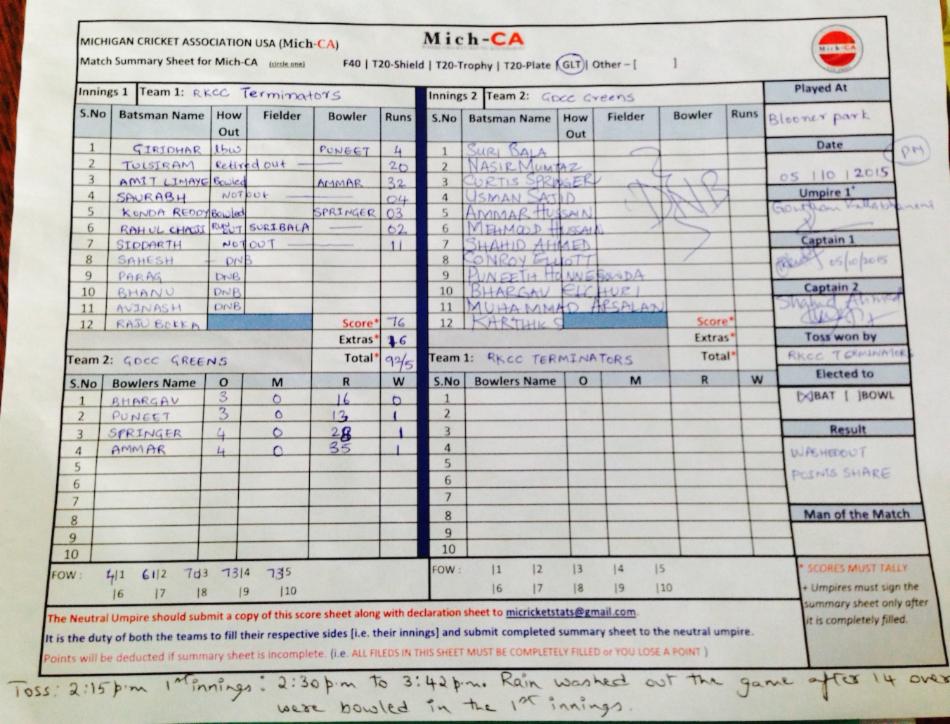 MICHIGAN CRICKET ASSOCIATION USA (Mich-CA)
Mich-CA
Mich-CA
Match Summary Sheet for Mich-CA (circle one) F40 | T20-Shield | T20-Trophy | T20-Plate | GLT | Other – [ ]
Innings 1 Team 1: RKCC Terminators
S.No Batsman Name How Out Fielder Bowler Runs
1 GIRIDHAR lbw PUNEET 4
2 TULSIRAM Retired out 20
3 AMIT LIMAYE Bowled AMMAR 32
4 SAURABH NOT OUT 04
5 KONDA REDDY Bowled SPRINGER 03
6 RAHUL OUT SURIBALA 02
7 SIDDARTH NOT OUT 11
8 SAHESH DNB
9 PARAG DNB
10 BHANU DNB
11 AVINASH DNB
12 RAJU BOKKA Score* 76
Extras* 16
Total* 92/5
Team 2: GDCC GREENS
S.No Bowlers Name O M R W
1 BHARGAV 3 0 16 0
2 PUNEET 3 0 13 1
3 SPRINGER 4 0 28 1
4 AMMAR 4 0 35 1
5
6
7
8
9
10
FOW: 4|1 61|2 70|3 73|4 73|5
|6 |7 |8 |9 |10
Innings 2 Team 2: GDCC Greens
S.No Batsman Name How Out Fielder Bowler Runs
1 SURI BALA
2 NASIR MUMTAZ
3 CURTIS SPRINGER
4 USMAN SAJID
5 AMMAR HUSSAIN
6 MEHMOOD HUSSAIN
7 SHAHID AHMED
8 CONROY ELLIOTT
9 PUNEETH HONNEGOWDA
10 BHARGAV ELCHURI
11 MUHAMMAD ARSALAN
12 KARTHIK S Score*
DNB
Extras*
Total*
Team 1: RKCC TERMINATORS
S.No Bowlers Name O M R W
1
2
3
4
5
6
7
8
9
10
FOW : |1 |2 |3 |4 |5
|6 |7 |8 |9 |10
Played At
Bloomer park
Date
PM
05 | 10 | 2015
Umpire 1
Captain 1
05/10/2015
Captain 2
Shahid Ahmed
Toss won by
RKCC TERMINATORS
Elected to
[X]BAT [ ]BOWL
Result
WASHEDOUT
POINTS SHARE
Man of the Match
* SCORES MUST TALLY
+ Umpires must sign the
summary sheet only after
it is completely filled.
The Neutral Umpire should submit a copy of this score sheet along with declaration sheet to micricketstats@gmail.com.
It is the duty of both the teams to fill their respective sides [i.e. their innings] and submit completed summary sheet to the neutral umpire.
Points will be deducted if summary sheet is incomplete. (i.e. ALL FILEDS IN THIS SHEET MUST BE COMPLETELY FILLED or YOU LOSE A POINT )
Toss: 2:15 p.m 1st innings: 2:30 p.m to 3:42 p.m. Rain washed out the game after 14 over
were bowled in the 1st innings.